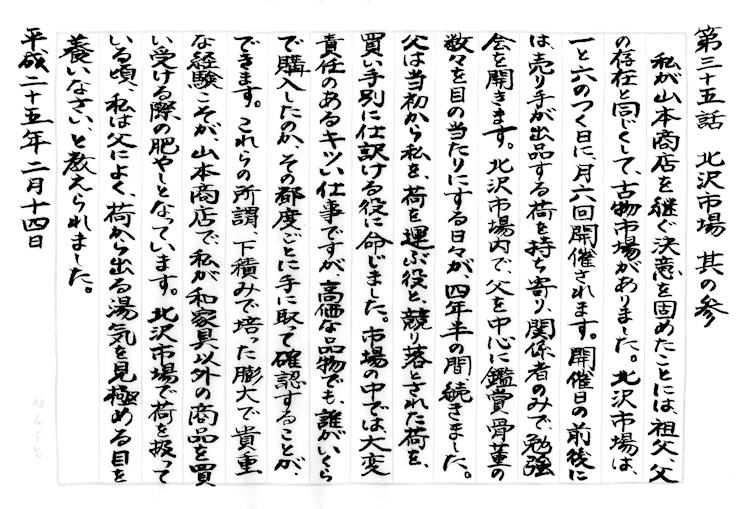 第三十五話　北沢市場　其の参
私が山本商店を継ぐ決意を固めたことには、祖父、父
の存在と同じくして、古物市場がありました。北沢市場は、
一と六のつく日に、月六回開催されます。開催日の前後に
は、売り手が出品する荷を持ち寄り、関係者のみで、勉強
会を開きます。北沢市場内で、父を中心に鑑賞骨董の
数々を目の当たりにする日々が、四年半の間続きました。
父は当初から私を、荷を運ぶ役と、競り落とされた荷を、
買い手別に仕訳ける役に命じました。市場の中では大変
責任のあるキツい仕事ですが、高価な品物でも、誰がいくら
で購入したのか、その都度ごとに手に取って確認することが、
できます。これらの所謂、下積みで培った膨大で貴重
な経験こそが、山本商店で、私が和家具以外の商品を買
い受ける際の肥やしとなっています。北沢市場で荷を扱って
いる頃、私は父によく、荷から出る湯気を見極める目を
養いなさい、と教えられました。
平成二十五年二月十四日